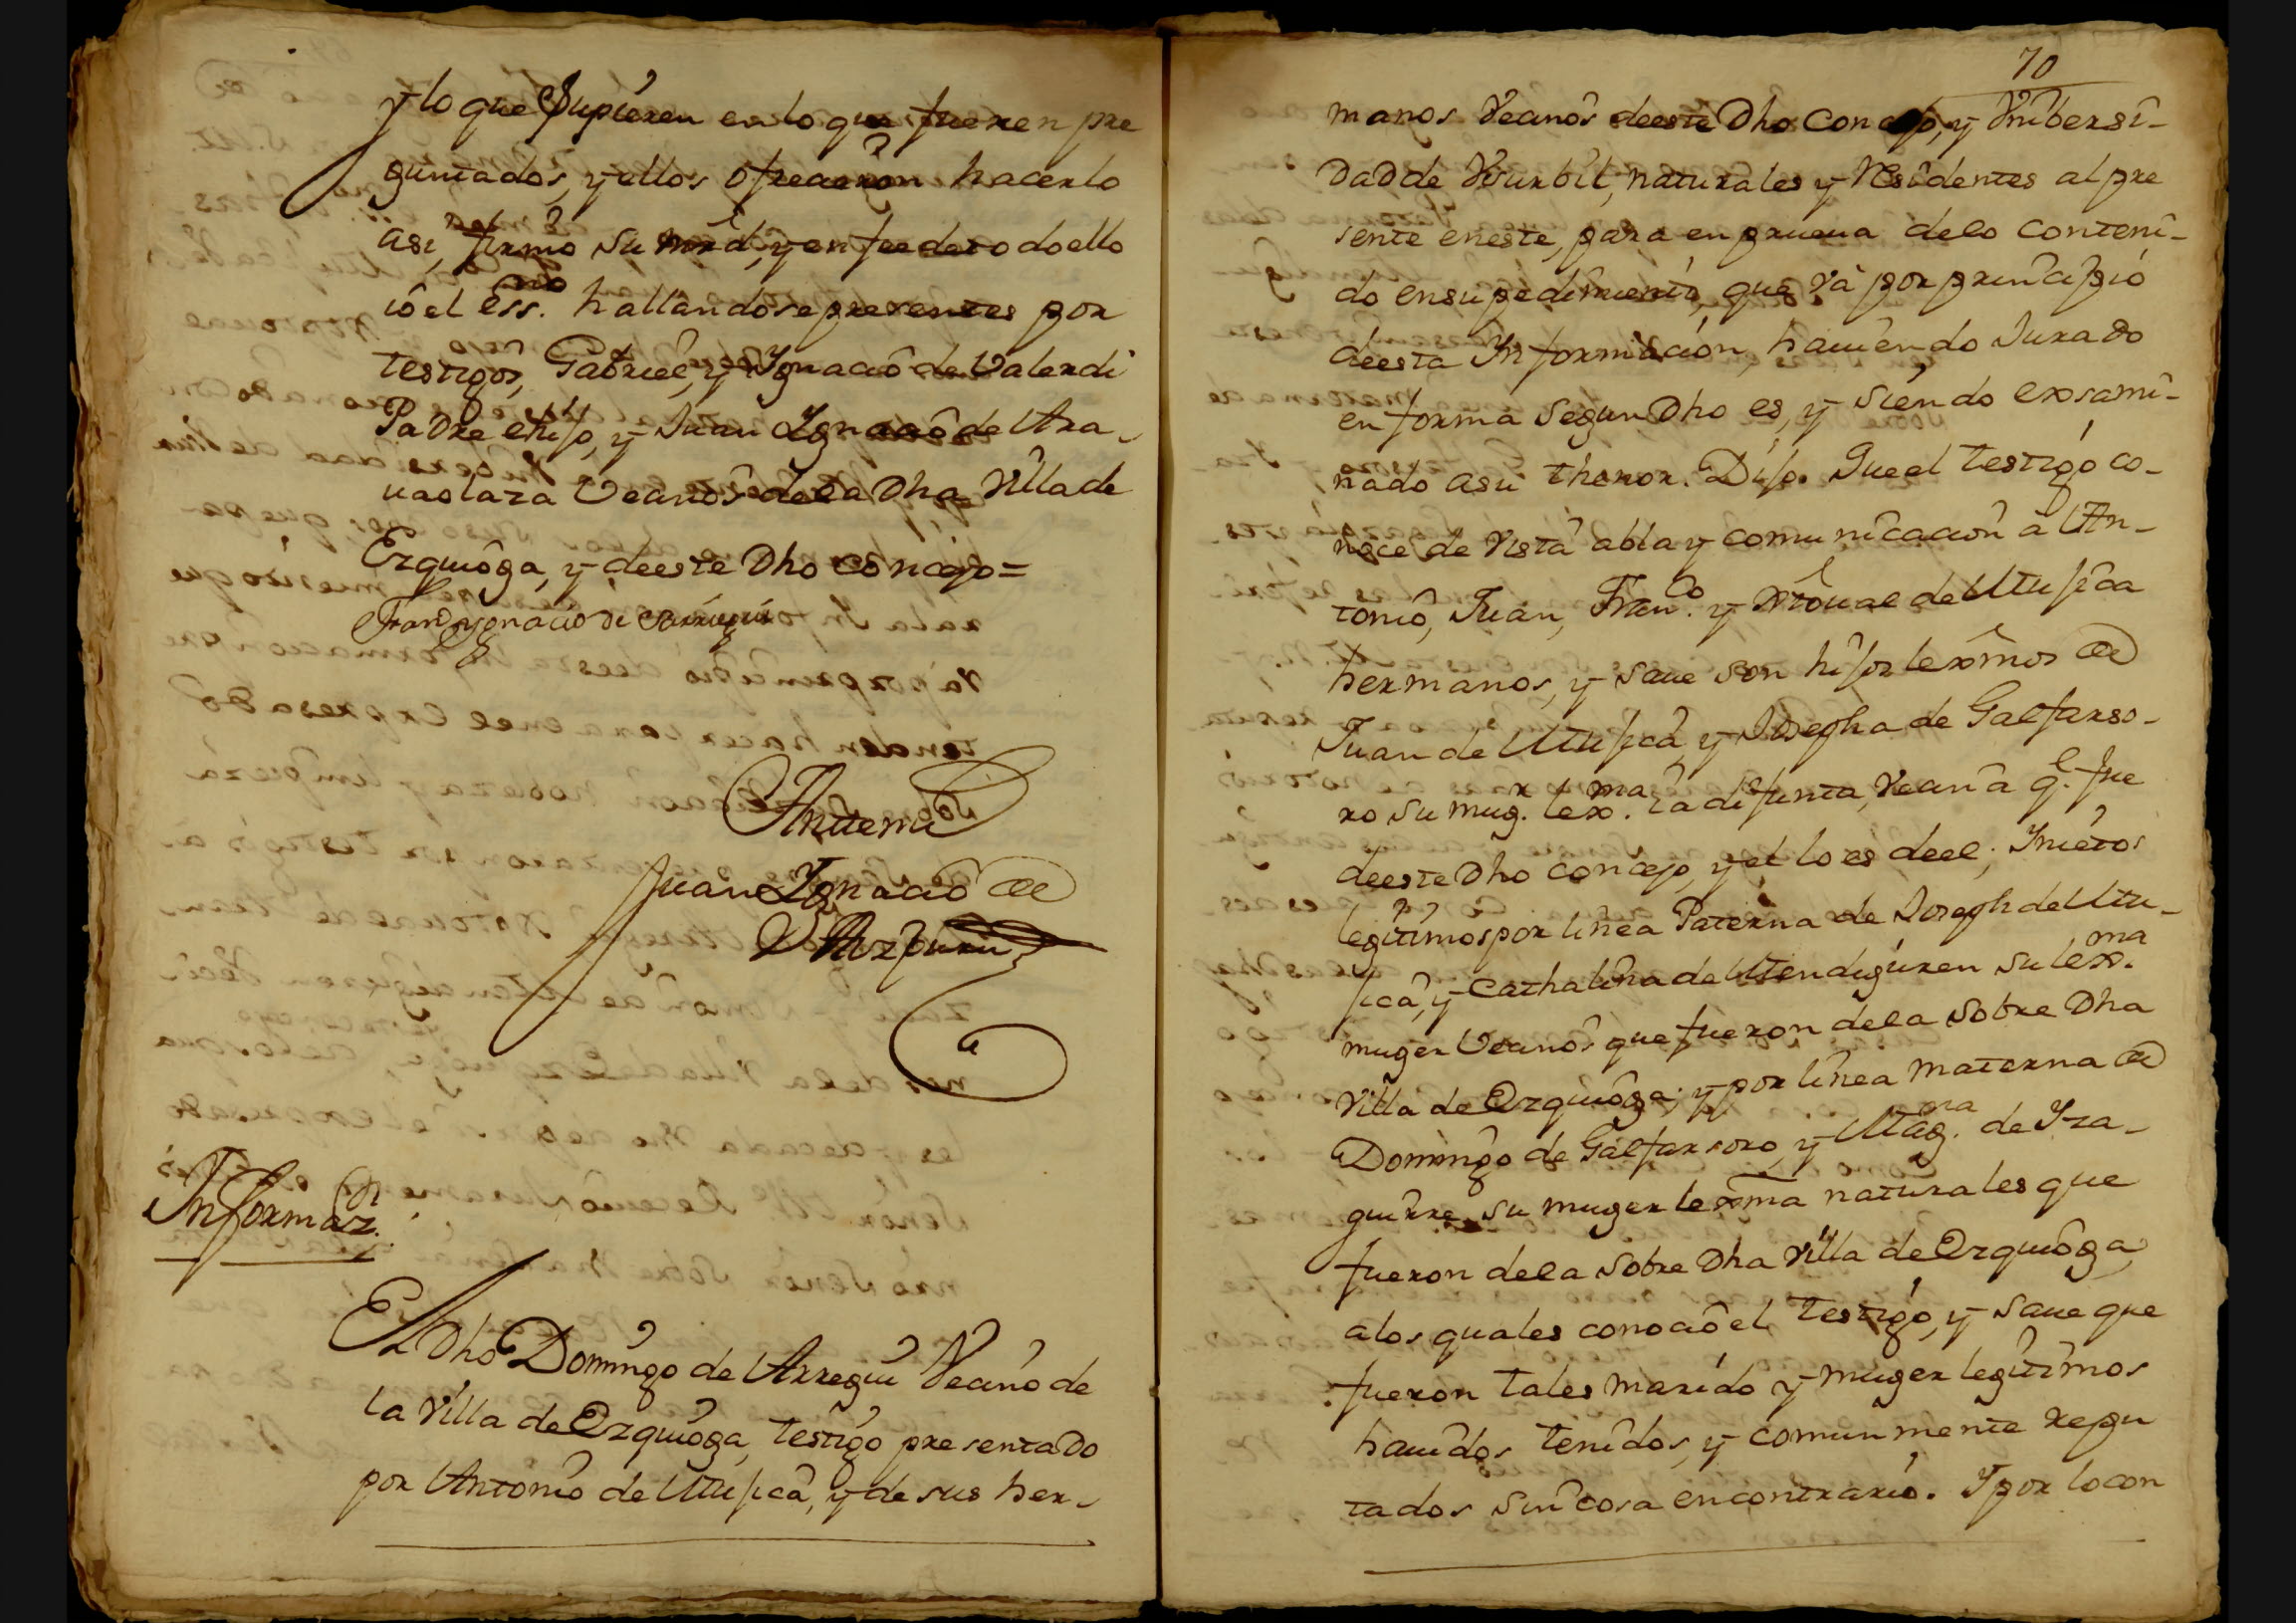 y lo que Supieren en lo que fueren pre
guntados, y ellos ofrecieron hacerlo
asi, firmo su mrd, y en fee de todo ello
io el Ess.no hallandose presentes por
testigos, Gabriel, y Ygnacio de Valerdi
Padre e hijo, y Juan Ygnacio de Ara-
uaolaza Vecinos de la Dha Villa de
Ezquioga, y de este Dho concejo=
Fran.co Ygnacio de
Antemi
Juan Ygnacio de
Aizpuru
Informaz.on
El Dho Domingo de Arregui Vecino de
la Villa de Ezquioga, testigo presentado
por Antonio de Mujica, y de sus her-
70
manos Vecinos de este Dho Concejo, y Vnibersi-
Dad de Vsurbil, naturales y Residentes al pre
sente en este, para en prueua de lo conteni-
do en su pedimiento, que va por principio
de esta Informacion, hauiendo Jurado
en forma segun Dho es, y siendo exsami-
nado a su thenor. Dijo. Que el testigo co-
noce de vista abla y comunicacion a An-
tonio, Juan, Fran.co y Xtoual de Mujica
hermanos, y saue son hijos lexmos de
Juan de Mujica, y Josepha de Galfarso-
ro su mug.r lex.ma ia difunta, Vecina q.e fue
de este Dho concejo, y el lo es de el; Y nietos
legitimos por linea Paterna de Joseph de Mu-
jica, y Cathalina de Mendiguren su lex.ma
muger Vecinos que fueron de la sobre Dha
Villa de Ezquioga; y por linea materna de
Domingo de Galfarsoro, y Mag.na de Yza-
guirre su muger lexma naturales que
fueron de la sobre Dha Villa de Ezquioga,
a los quales conocio el testigo, y saue que
fueron tales marido y muger legitimos
hauidos tenidos, y comunmente repu
tados sin cosa en contrario. Y por lo con